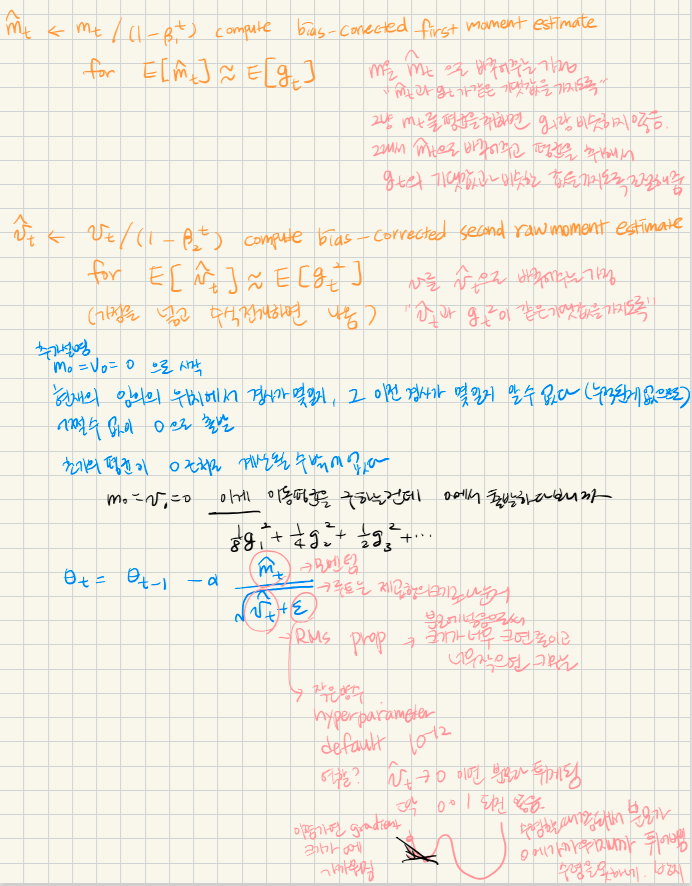 m̂t ← mt / (1 - β₁ᵗ) compute bias-conected first moment estimate
for E[m̂t] ≈ E[gt]
m을 m̂t 으로 바꿔주는 가정
"m̂t과 gt가 같은 기댓값을 가지도록"
그냥 mt를 평균을 취하면 gt랑 비슷하지 않음.
그래서 m̂t으로 바꿔주고 평균을 취해서
gt의 기댓값과 비슷한 값을 가지도록 조절해줌
v̂t ← vt / (1 - β₂ᵗ) compute bias-corrected second raw moment estimate
for E[v̂t] ≈ E[gt²]
v를 v̂t으로 바꿔주는 가정
(가정을 넣고 수식전개하면 나옴)
"v̂t과 gt²이 같은 기댓값을 가지도록"
추가설명
m₀ = v₀ = 0 으로 시작
현재의 임의의 위치에서 경사가 몇일지, 그 이전 경사가 몇일지 알 수 없다 (누적된게 없으므로)
어쩔수 없이 0으로 출발
초기의 평균이 0 근처로 계산될 수 밖에 없다
m₀ = v₀ = 0 이게 이동평균을 구하는건데 0에서 출발하다보니까
1/8 g₁² + 1/4 g₂² + 1/2 g₃² + ...
θt = θt-1 - α m̂t / √(v̂t + ε)
→ 모멘텀
→ 루트는 제곱형의 크기로 나눠서
→ RMS prop → 분모에 넣음으로써
크기가 너무 크면 줄이고
너무 작으면 키우는
→ 작은 상수
hyperparameter
default 10⁻¹²
역할? v̂t → 0 이면 분모가 튀게됨
딱 0 이 되면 안됨
이동기면 gradient
크기가 0에
가까워짐
수렴할 때 분모가
0에 가까우면 튀어버림
수렴을 못하게.